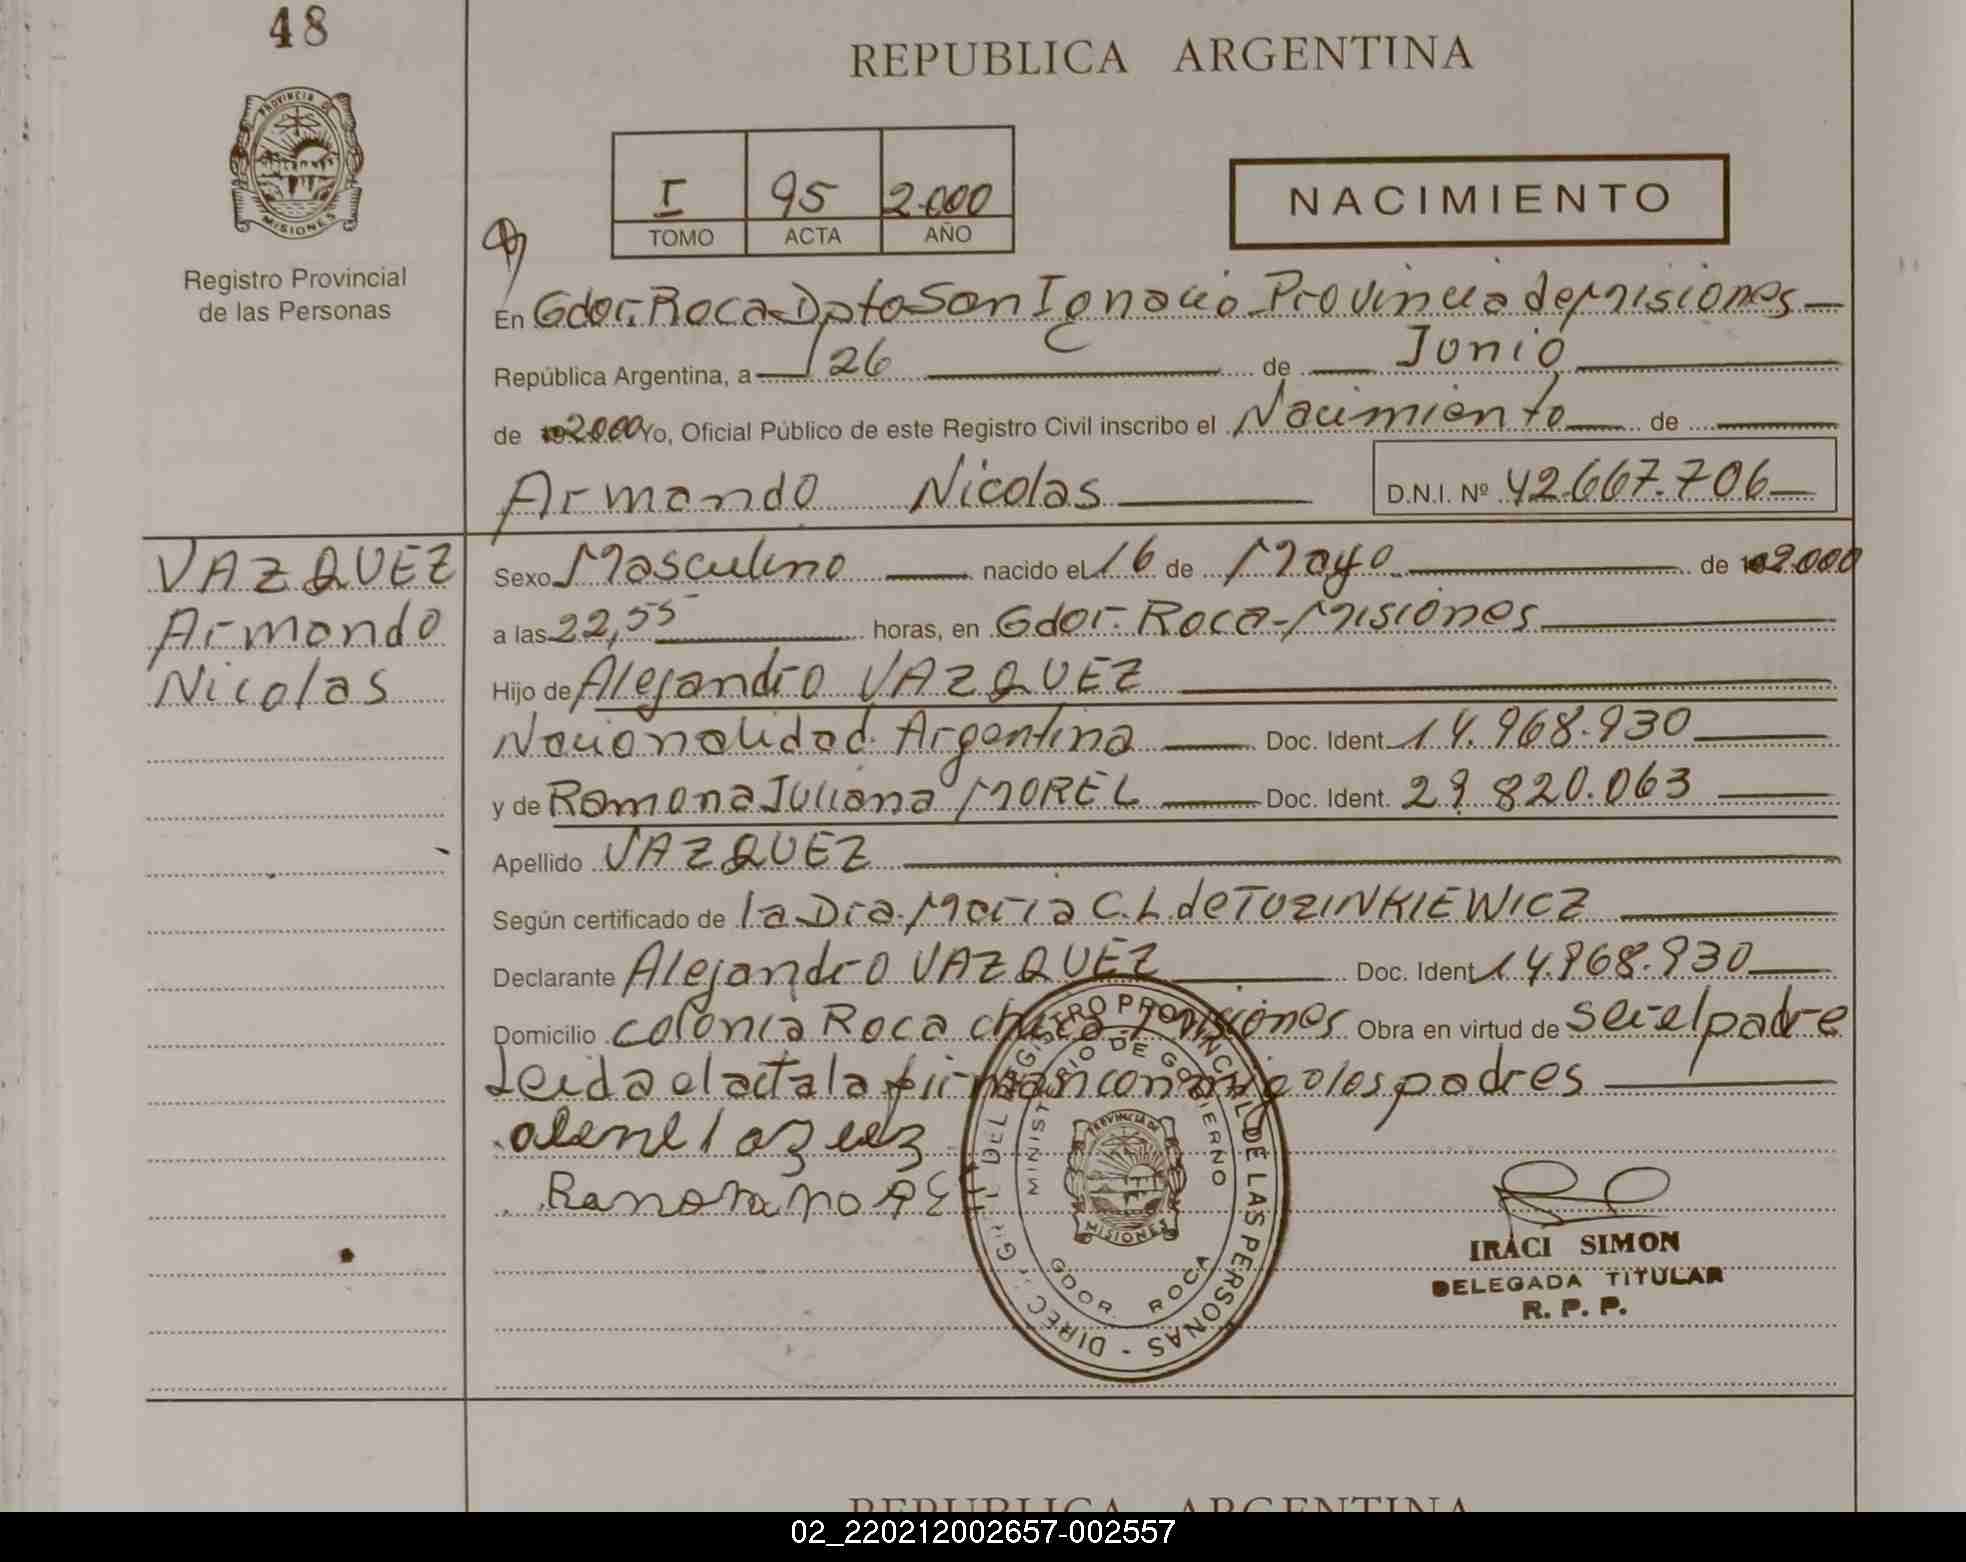 48
REPUBLICA ARGENTINA
PROVINCIA DE
MISIONES
Registro Provincial
de las Personas
I 95 2.000
TOMO ACTA AÑO
NACIMIENTO
En Gdor. Roca Dpto San Ignacio Provincia de Misiones
República Argentina, a 26 de Junio
de 2000 Yo, Oficial Público de este Registro Civil inscribo el Nacimiento de
Armando Nicolas D.N.I. Nº 42.667.706
VAZQUEZ
Armando
Nicolas
Sexo Masculino nacido el 16 de Mayo de 2000
a las 22,55 horas, en Gdor. Roca-Misiones
Hijo de Alejandro VAZQUEZ
Nacionalidad Argentina Doc. Ident. 14.968.930
y de Ramona Juliana MOREL Doc. Ident. 29.820.063
Apellido VAZQUEZ
Según certificado de la Dra. Maria C.L. de TOZINKIEWICZ
Declarante Alejandro VAZQUEZ Doc. Ident. 14.968.930
Domicilio colonia Roca chica Misiones Obra en virtud de ser el padre
Leida el acta la firman conmigo los padres
DIREC. GRAL. DEL REGISTRO PROVINCIAL DE LAS PERSONAS -
MINISTERIO DE GOBIERNO
PROVINCIA DE
MISIONES
GDOR. ROCA
IRACI SIMON
DELEGADA TITULAR
R. P. P.
REPUBLICA ARGENTINA
02_220212002657-002557